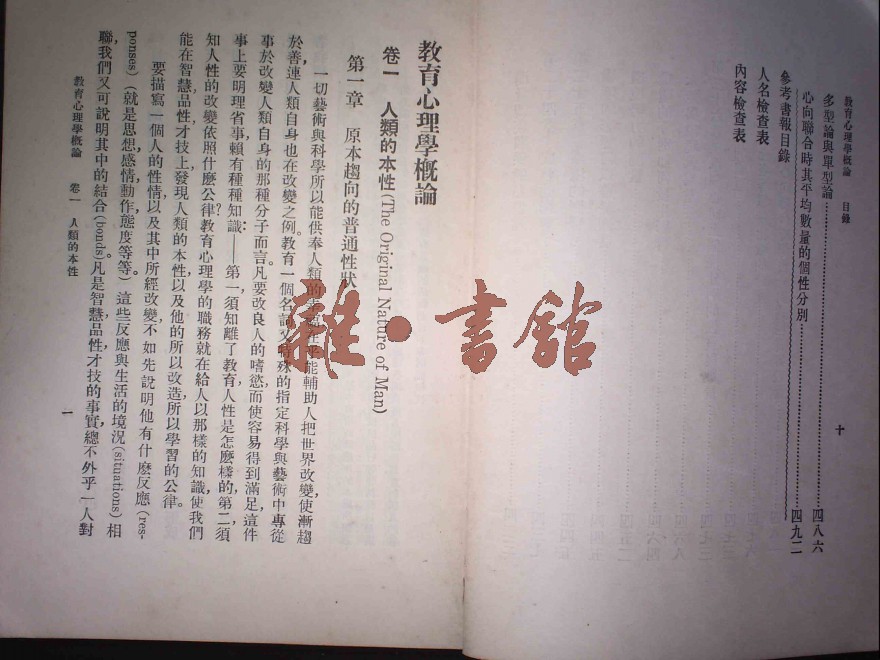 教育心理學概論 目錄
十
多型論與單型論……………………………四八六
心向聯合時其平均數量的個性分別……………………………四九二
參考書報目錄
人名檢查表
內容檢查表
教育心理學概論
卷一 人類的本性(The Original Nature of Man)
第一章 原本趨向的普通性狀
一切藝術與科學所以能供奉人類的 能輔助人把世界改變,使漸趨
於善,連人類自身也在改變之例。教育一個名詞又特殊的指定科學與藝術中專從
事於改變人類自身的那種分子而言。凡要改良人的嗜慾,而使容易得到滿足,這件
事上要明理省事,賴有種種知識:——第一,須知離了教育,人性是怎麽樣的,第二,須
知人性的改變依照什麽公律?教育心理學的職務就在給人以那樣的知識,使我們
能在智慧,品性,才技上,發現人類的本性,以及他的所以改造,所以學習的公律。
要描寫一個人的性情,以及其中所經改變,不如先說明他有什麽反應(res-
ponses)(就是思想,感情,動作,態度等等)這些反應與生活的境況(situations)相
聯,我們又可說明其中的結合(bonds)。凡是智慧,品性,才技的事實,總不外乎一人對
教育心理學概論 卷一 人類的本性
一
雜·書館